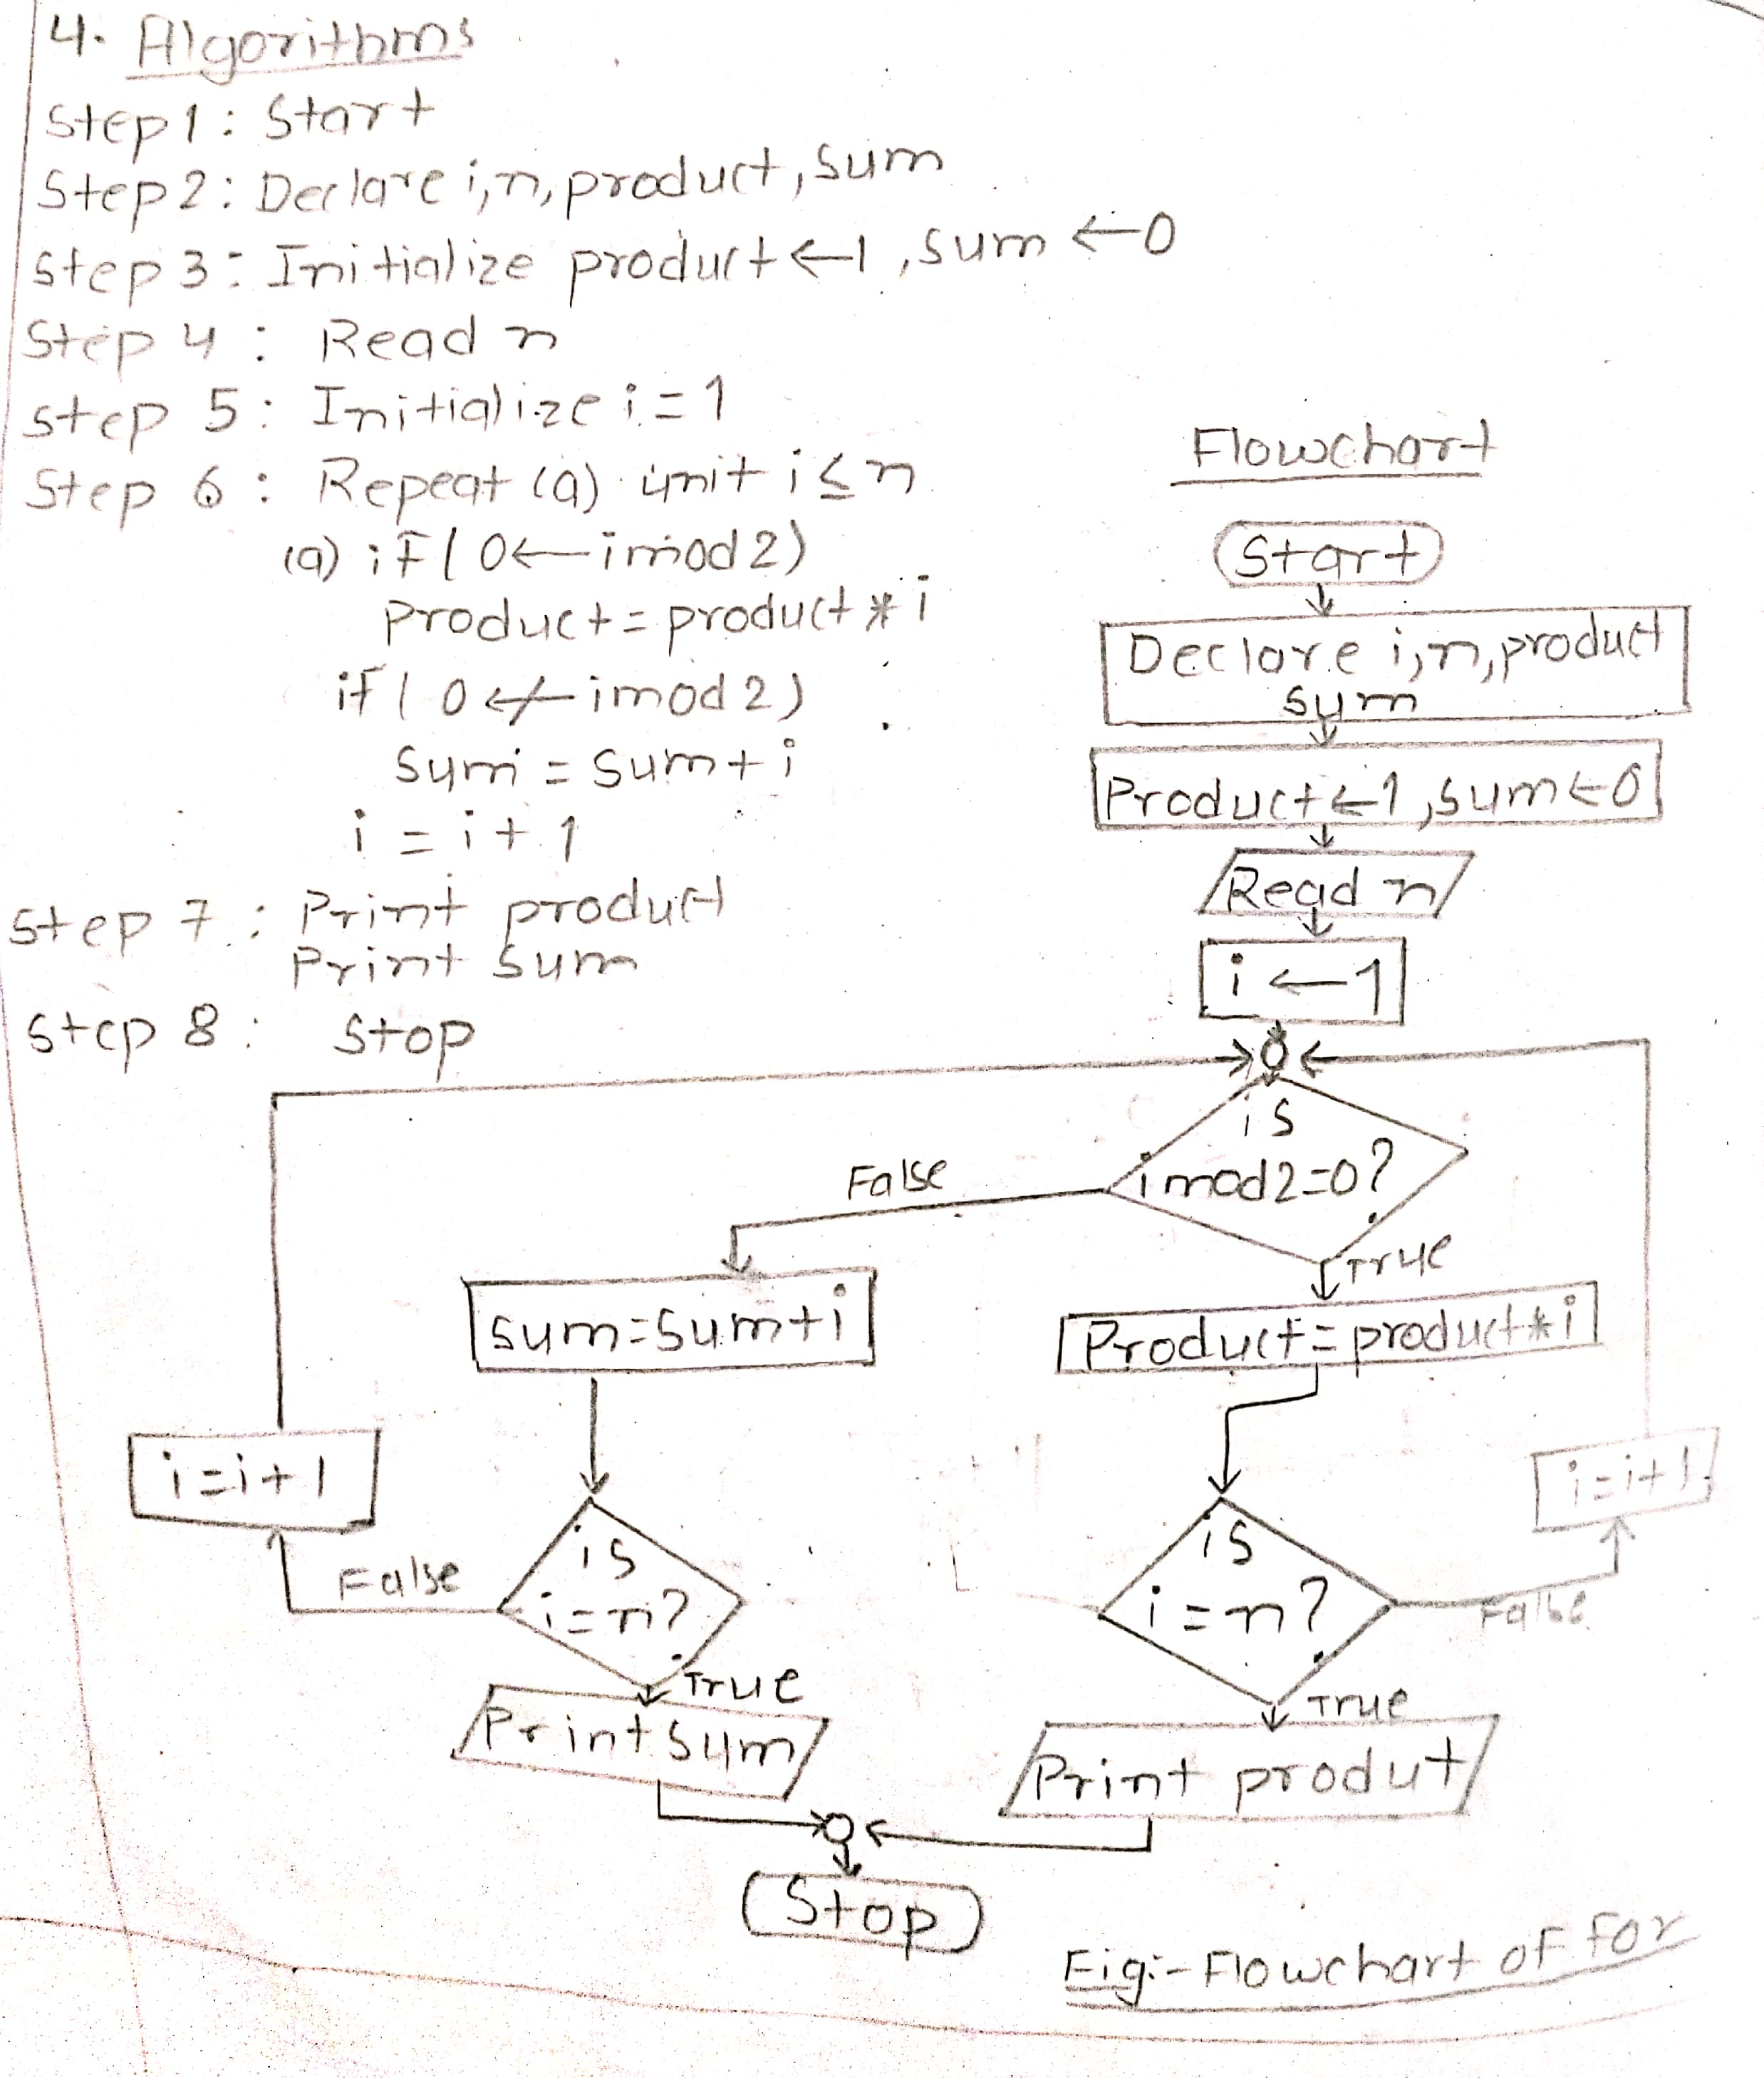 4. Algorithms
Step 1: Start
Step 2: Declare i,n, product, sum
Step 3: Initialize product←1, sum ←0
Step 4: Read n
Step 5: Initialize i=1
Step 6: Repeat (a) unit i≤n
(a) if ( 0← i mod 2)
product = product * i
if ( 0 ↚ i mod 2)
Sum = sum + i
i = i + 1
Step 7: Print product
Print sum
Step 8: Stop
Flowchart
Start
Declare i,n, product
sum
Product←1, sum←0
Read n
i ←1
is
i mod 2=0?
False
True
sum=sum+i
Product=product*i
i=i+1
i=i+1
is
i=n?
False
is
i=n?
False
True
True
Print sum
Print produt
Stop
Fig:- Flowchart of for